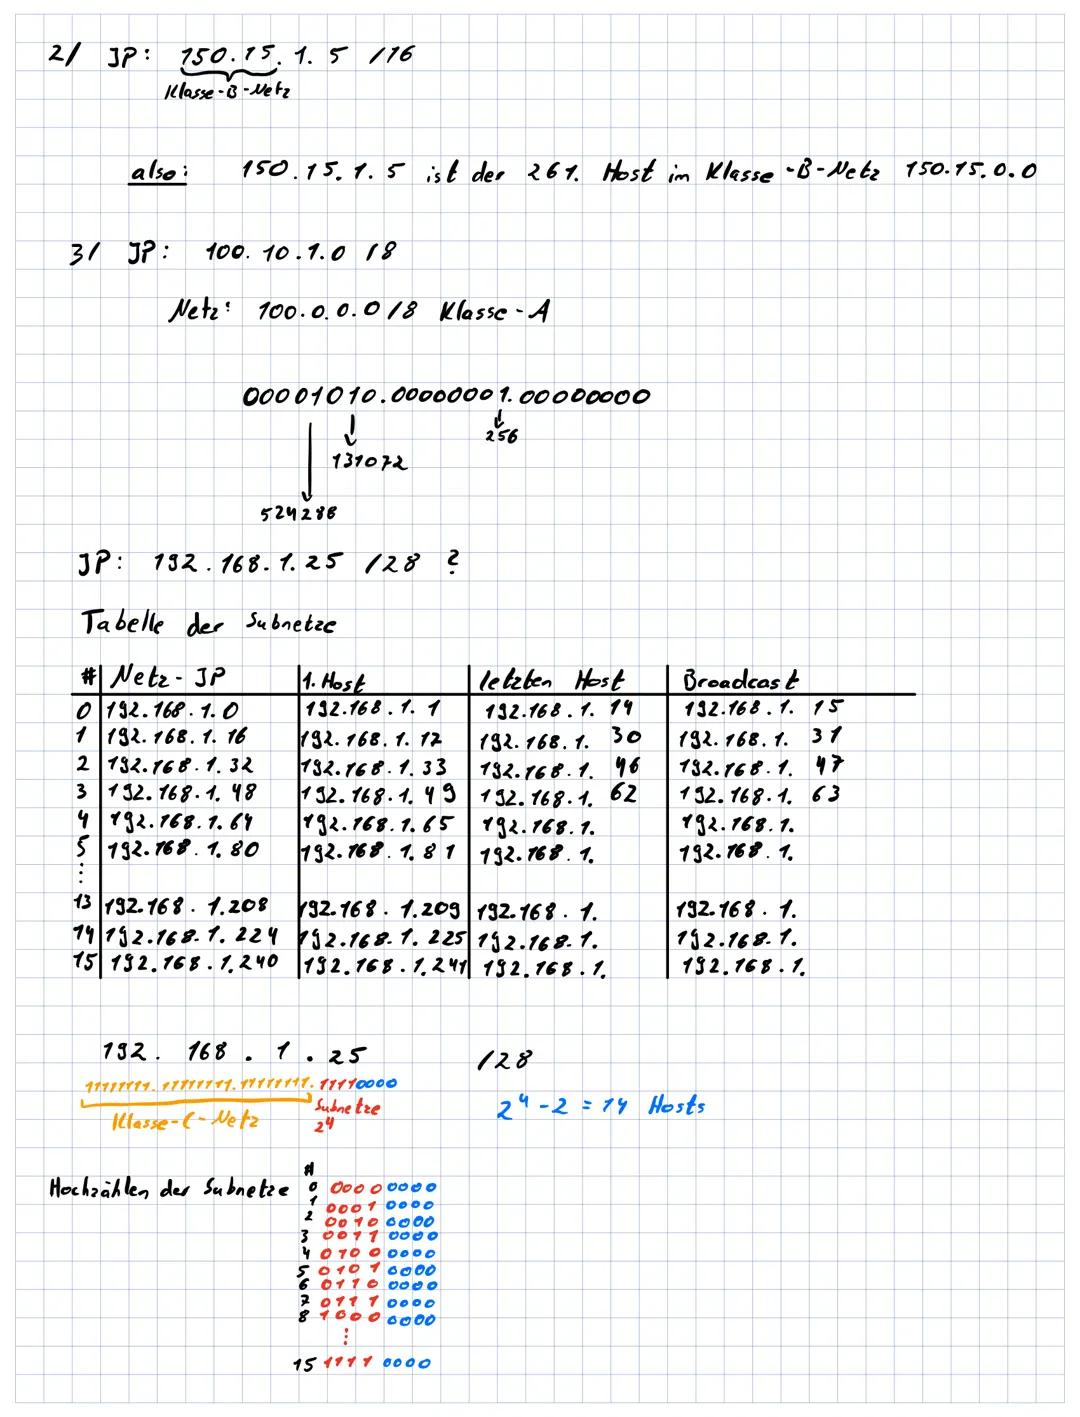 2/ IP: 150.15.1.5 /16
Klasse-B-Netz
also: 150.15.1.5 ist der 261. Host im Klasse-B-Netz 150.15.0.0
3/ IP: 100.10.1.0 /8
Netz: 100.0.0.0/8 Klasse-A
00001010.00000001.00000000
256
131072
524288
IP: 192.168.1.25 /28 ?
Tabelle der Subnetze
# Netz-IP 1. Host letzten Host Broadcast
0 192.168.1.0 192.168.1.1 192.168.1.14 192.168.1.15
1 192.168.1.16 192.168.1.17 192.168.1.30 192.168.1.31
2 192.168.1.32 192.168.1.33 192.168.1.46 192.168.1.47
3 192.168.1.48 192.168.1.49 192.168.1.62 192.168.1.63
4 192.168.1.64 192.168.1.65 192.168.1. 192.168.1.
5 192.168.1.80 192.168.1.81 192.168.1. 192.168.1.
⋮
13 192.168.1.208 192.168.1.209 192.168.1. 192.168.1.
14 192.168.1.224 192.168.1.225 192.168.1. 192.168.1.
15 192.168.1.240 192.168.1.241 192.168.1. 192.168.1.
192. 168. 1. 25 /28
11111111.11111111.11111111.11110000
Klasse-C-Netz Subnetze 2⁴
2⁴-2 = 14 Hosts
Hochzählen der Subnetze
#
0 0000 0000
1 0001 0000
2 0010 0000
3 0011 0000
4 0100 0000
5 0101 0000
6 0110 0000
7 0111 0000
8 1000 0000
⋮
15 1111 0000